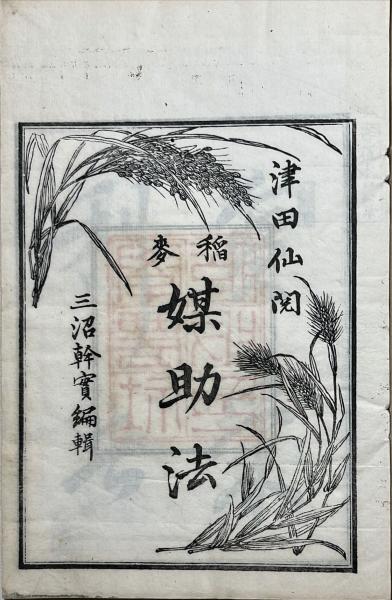 津田仙閲
稻麥
媒助法
三沼幹實編輯